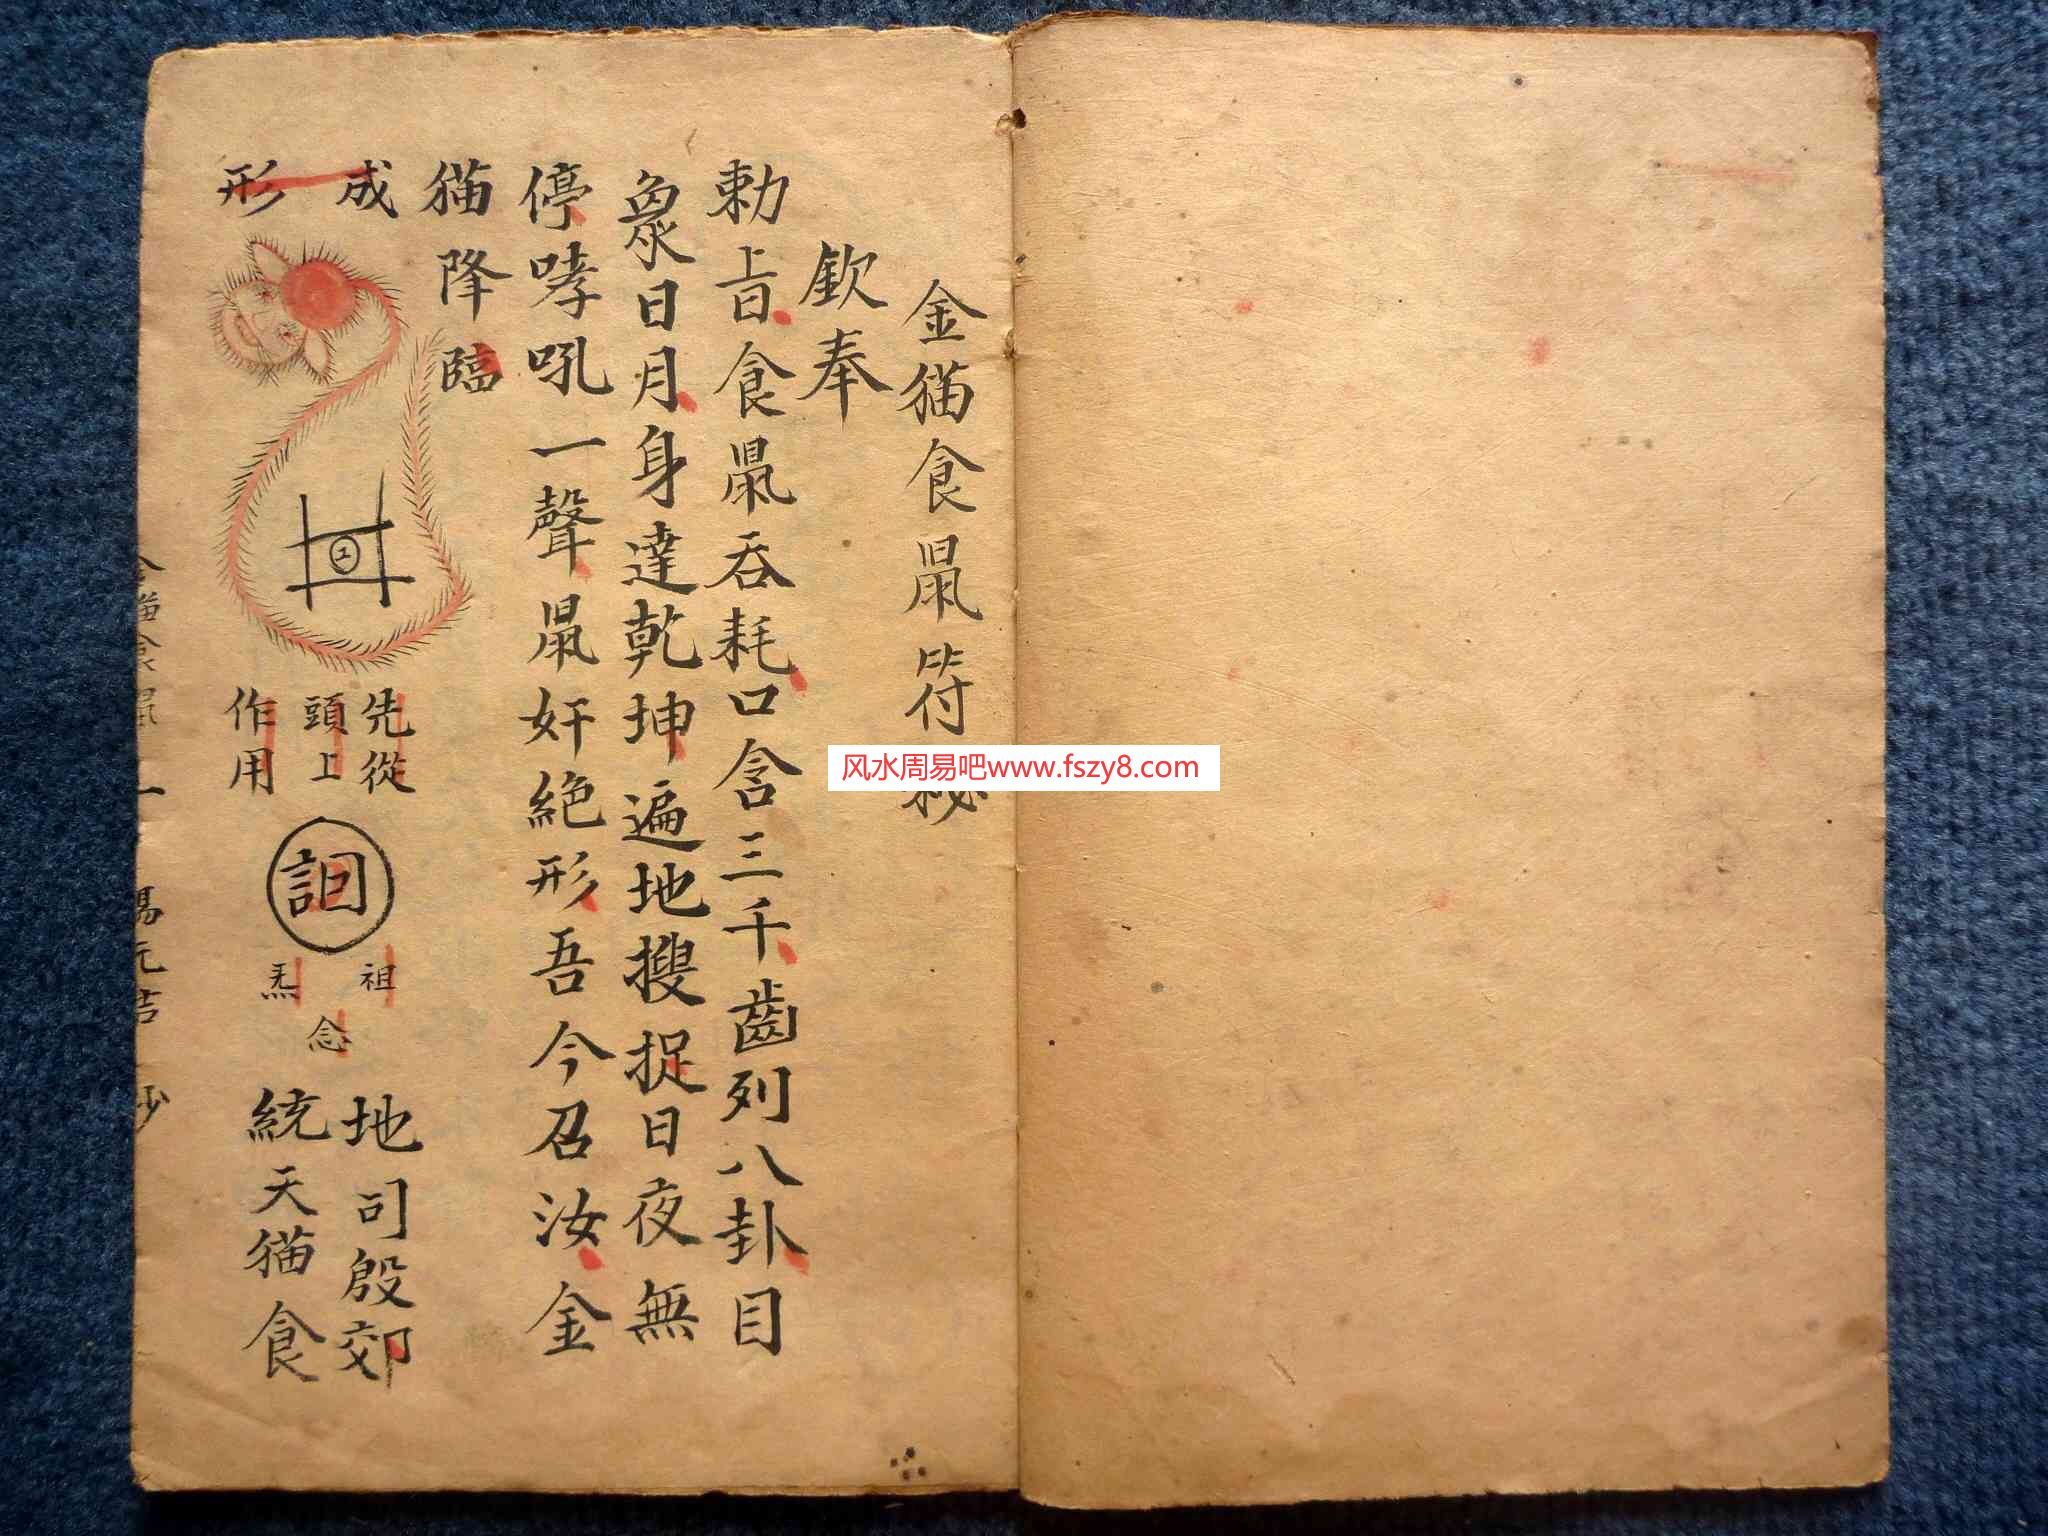 金猫食鼠符秘
欽奉
勅旨食鼠吞耗口含三千齒列八卦目
象日月身達乾坤遍地搜捉日夜無
停哮吼一聲鼠奸絕形吾今召汝金
猫降臨
成形
先從
頭上
作用
祖
炁
念
地司殷郊
統天猫食
金猫食鼠 一 楊元吉 抄
风水周易吧www.fszy8.com